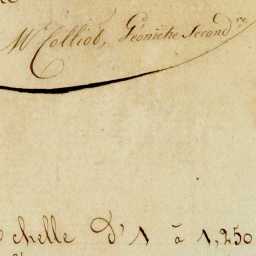 Mr Colliot, Géomètre Secondre
chelle D'1 à 1,250